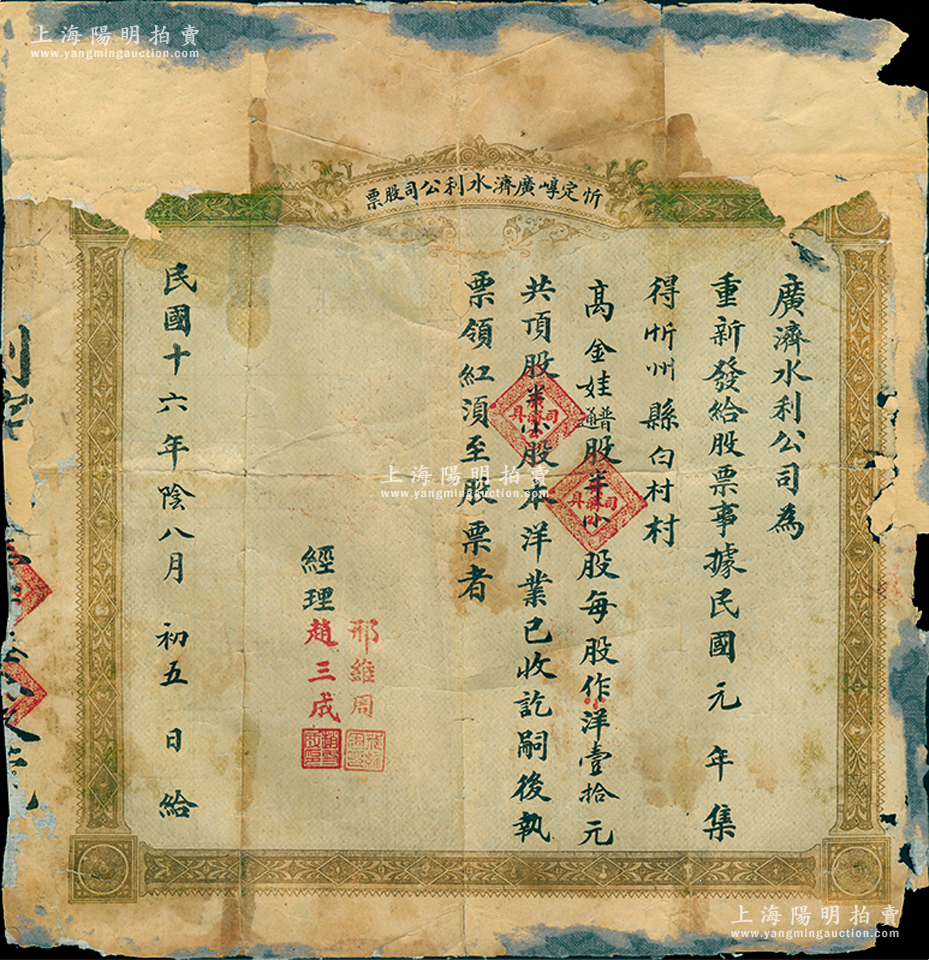 上海陽明拍賣
www.yangmingauction.com
上海陽明拍賣
www.yangmingauction.com
忻定崞廣濟水利公司股票
廣濟水利公司為
重新發給股票事據民國元年集
得忻州縣白村村
高金娃普通股半小股每股作洋壹拾元
共頂股半小股本洋業已收訖嗣後執
票領紅須至股票者
經理
邢維周
趙三成
民國十六年陰八月初五日給
上海陽明拍賣
www.yangmingauction.com
上海陽明拍賣
www.yangmingauction.com